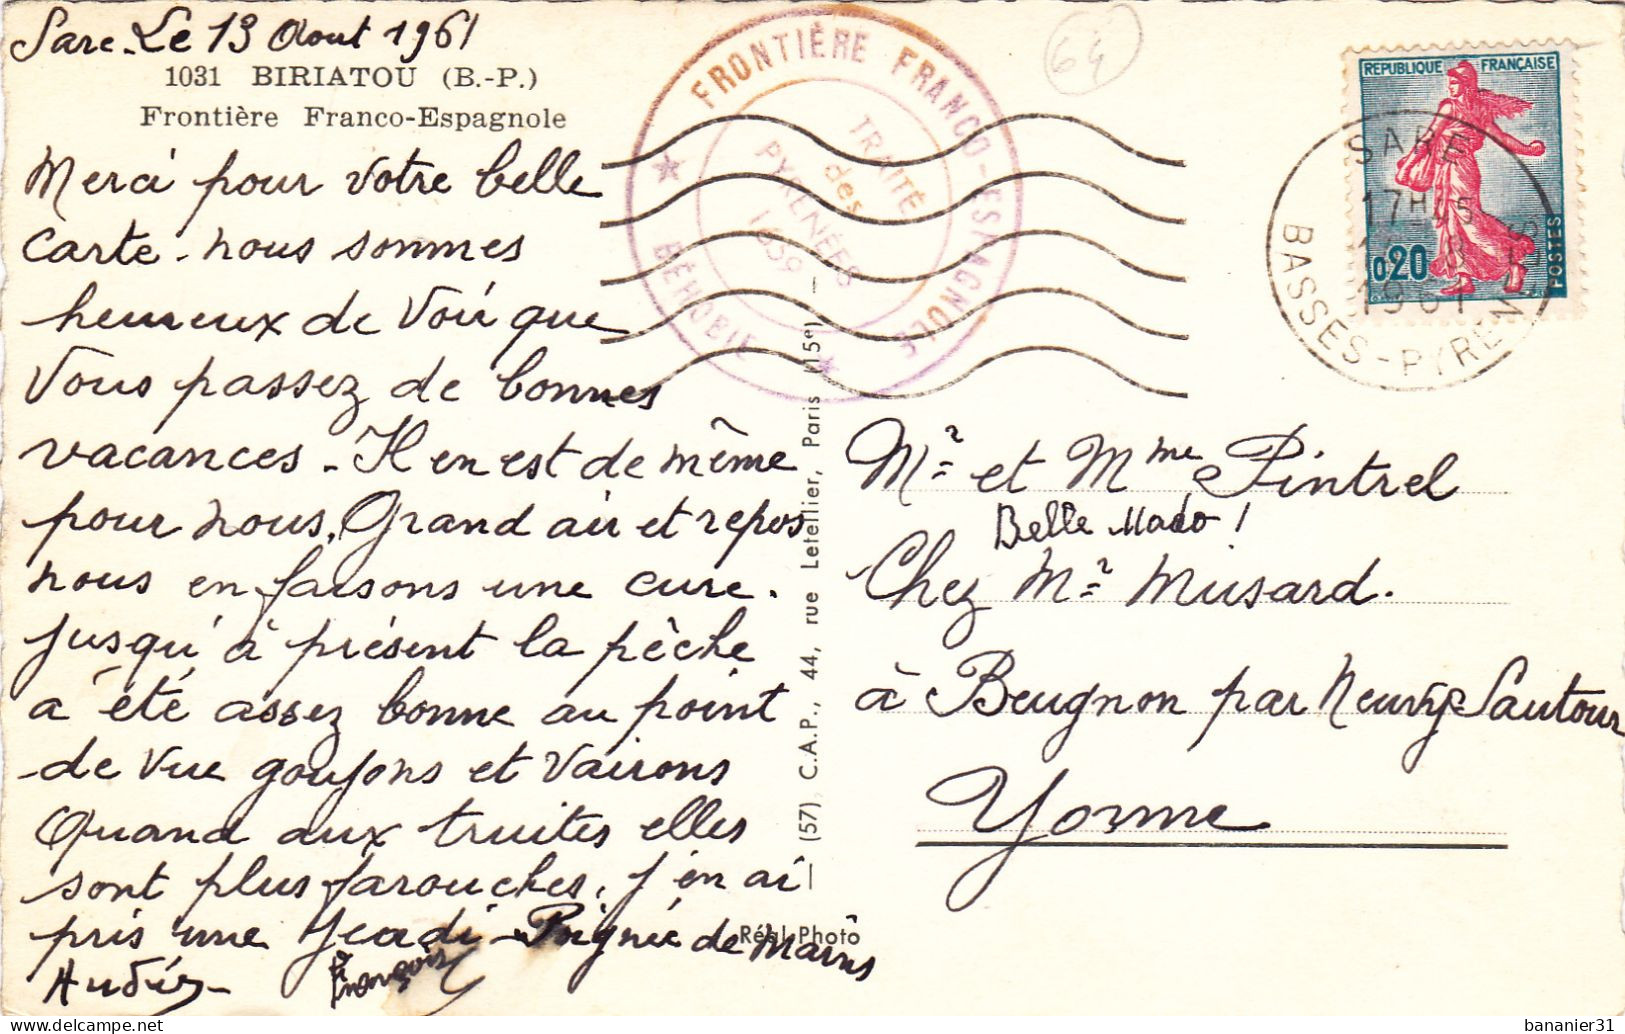 Sare - Le 13 Aout 1961
1031 BIRIATOU (B.-P.)
Frontière Franco-Espagnole
Merci pour votre belle
carte - nous sommes
heureux de Voir que
Vous passez de bonnes
vacances - Il en est de même
pour nous, Grand air et repos
nous en faisons une cure.
Jusqu'à présent la pêche
a été assez bonne au point
de Vue goujons et Vairons
Quand aux truites elles
sont plus farouches, j'en ai
pris une Jeudi - Poignée de Mains
François
FRONTIÈRE FRANCO-ESPAGNOLE
BÉHOBIE
TRAITÉ
des
PYRÉNÉES
1659
64
REPUBLIQUE FRANÇAISE
0,20
POSTES
SARE
17H
1961
BASSES-PYRENEES
(57) C.A.P., 44, rue Letellier, Paris (15e)
Réal-Photo
Mr et Mme Pintrel
Belle Mado !
Chez Mr Musard.
à Beugnon par Neuvy-Sautour
Yonne
delcampe.net
bananier31